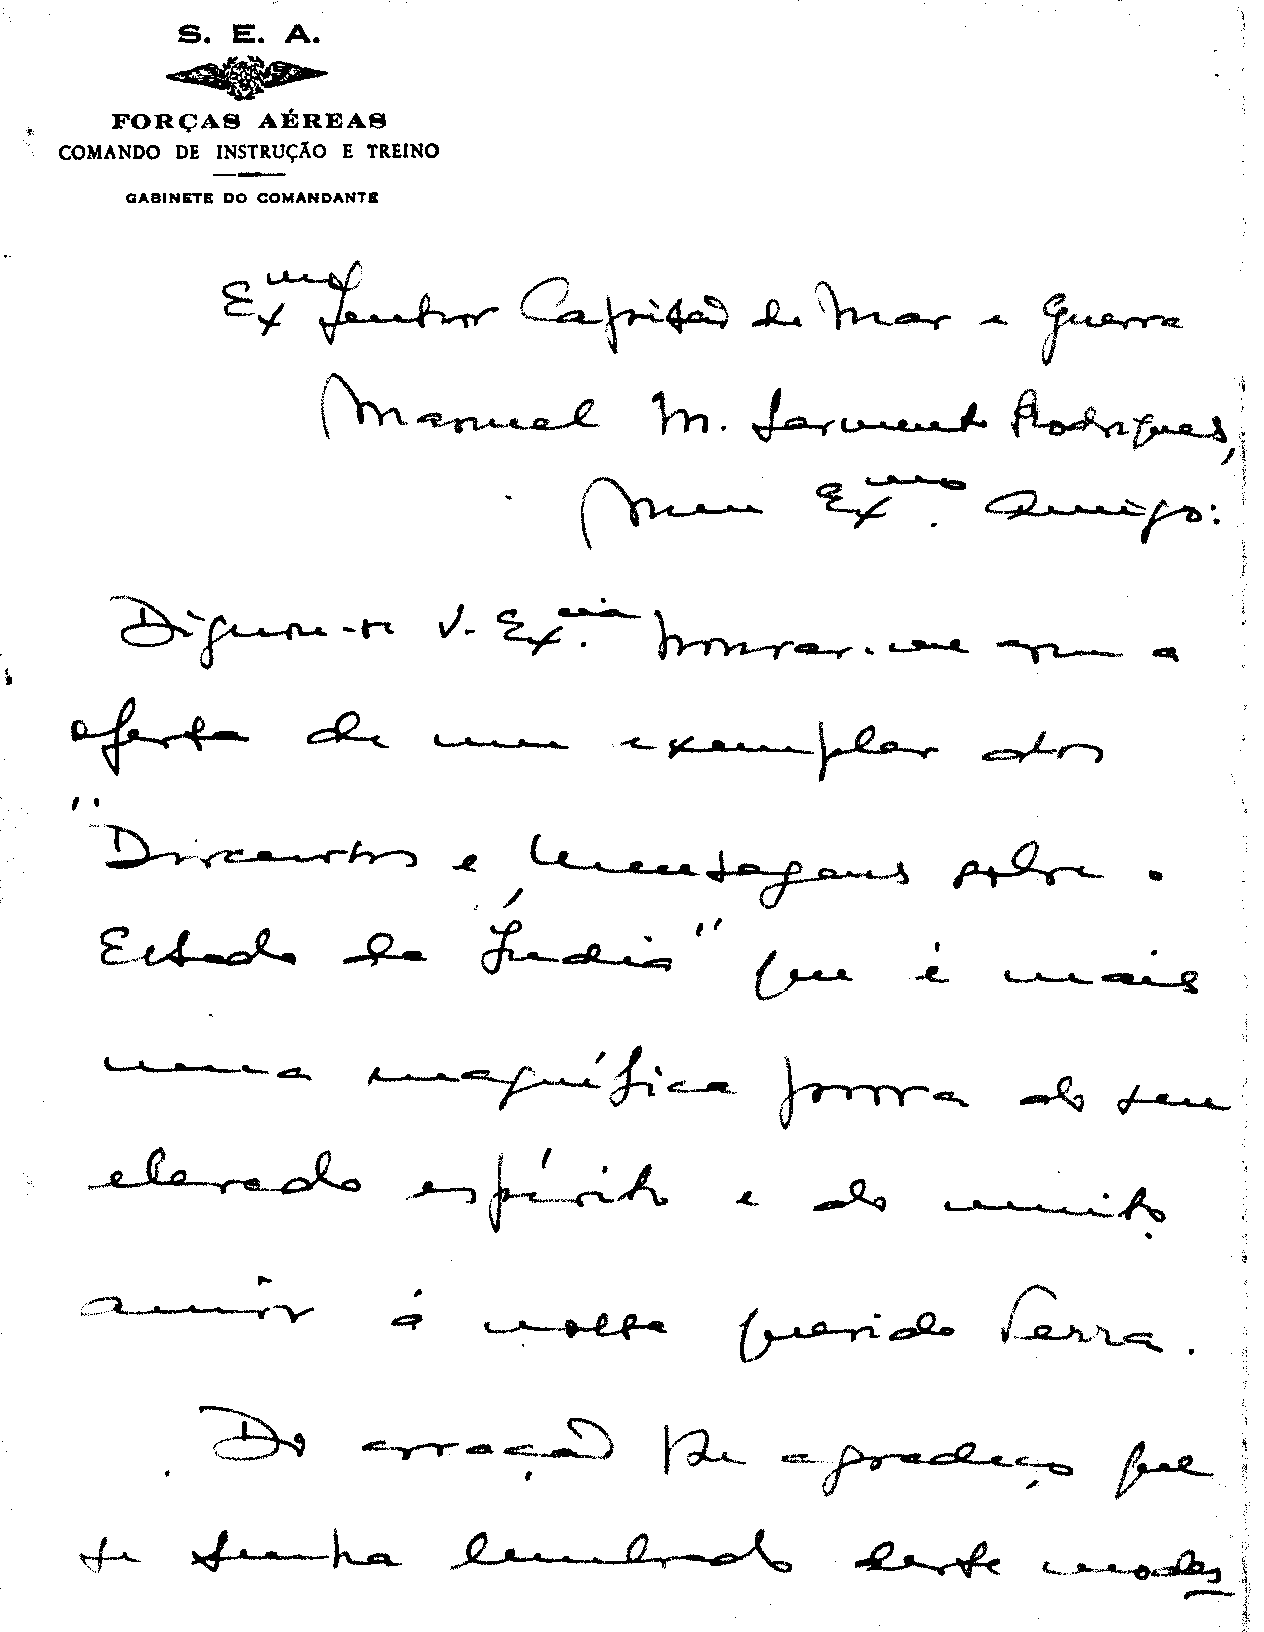 S. E. A.
FORÇAS AÉREAS
COMANDO DE INSTRUÇÃO E TREINO
GABINETE DO COMANDANTE
Exmo Senhor Capitão de Mar e Guerra
Manuel M. Sarmento Rodrigues,
Meu Exmo. Amigo:
Dignou-se V. Excia. honrar-me com a
oferta de um exemplar dos
"Discursos e Mensagens sobre o
Estado da Índia" que é mais
uma magnífica prova do seu
elevado espírito e do muito
amôr á nossa querida Terra.
Do coração lhe agradeço que
se tenha lembrado deste modes